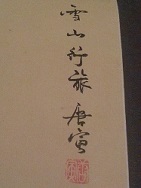 雪山行旅 唐寅